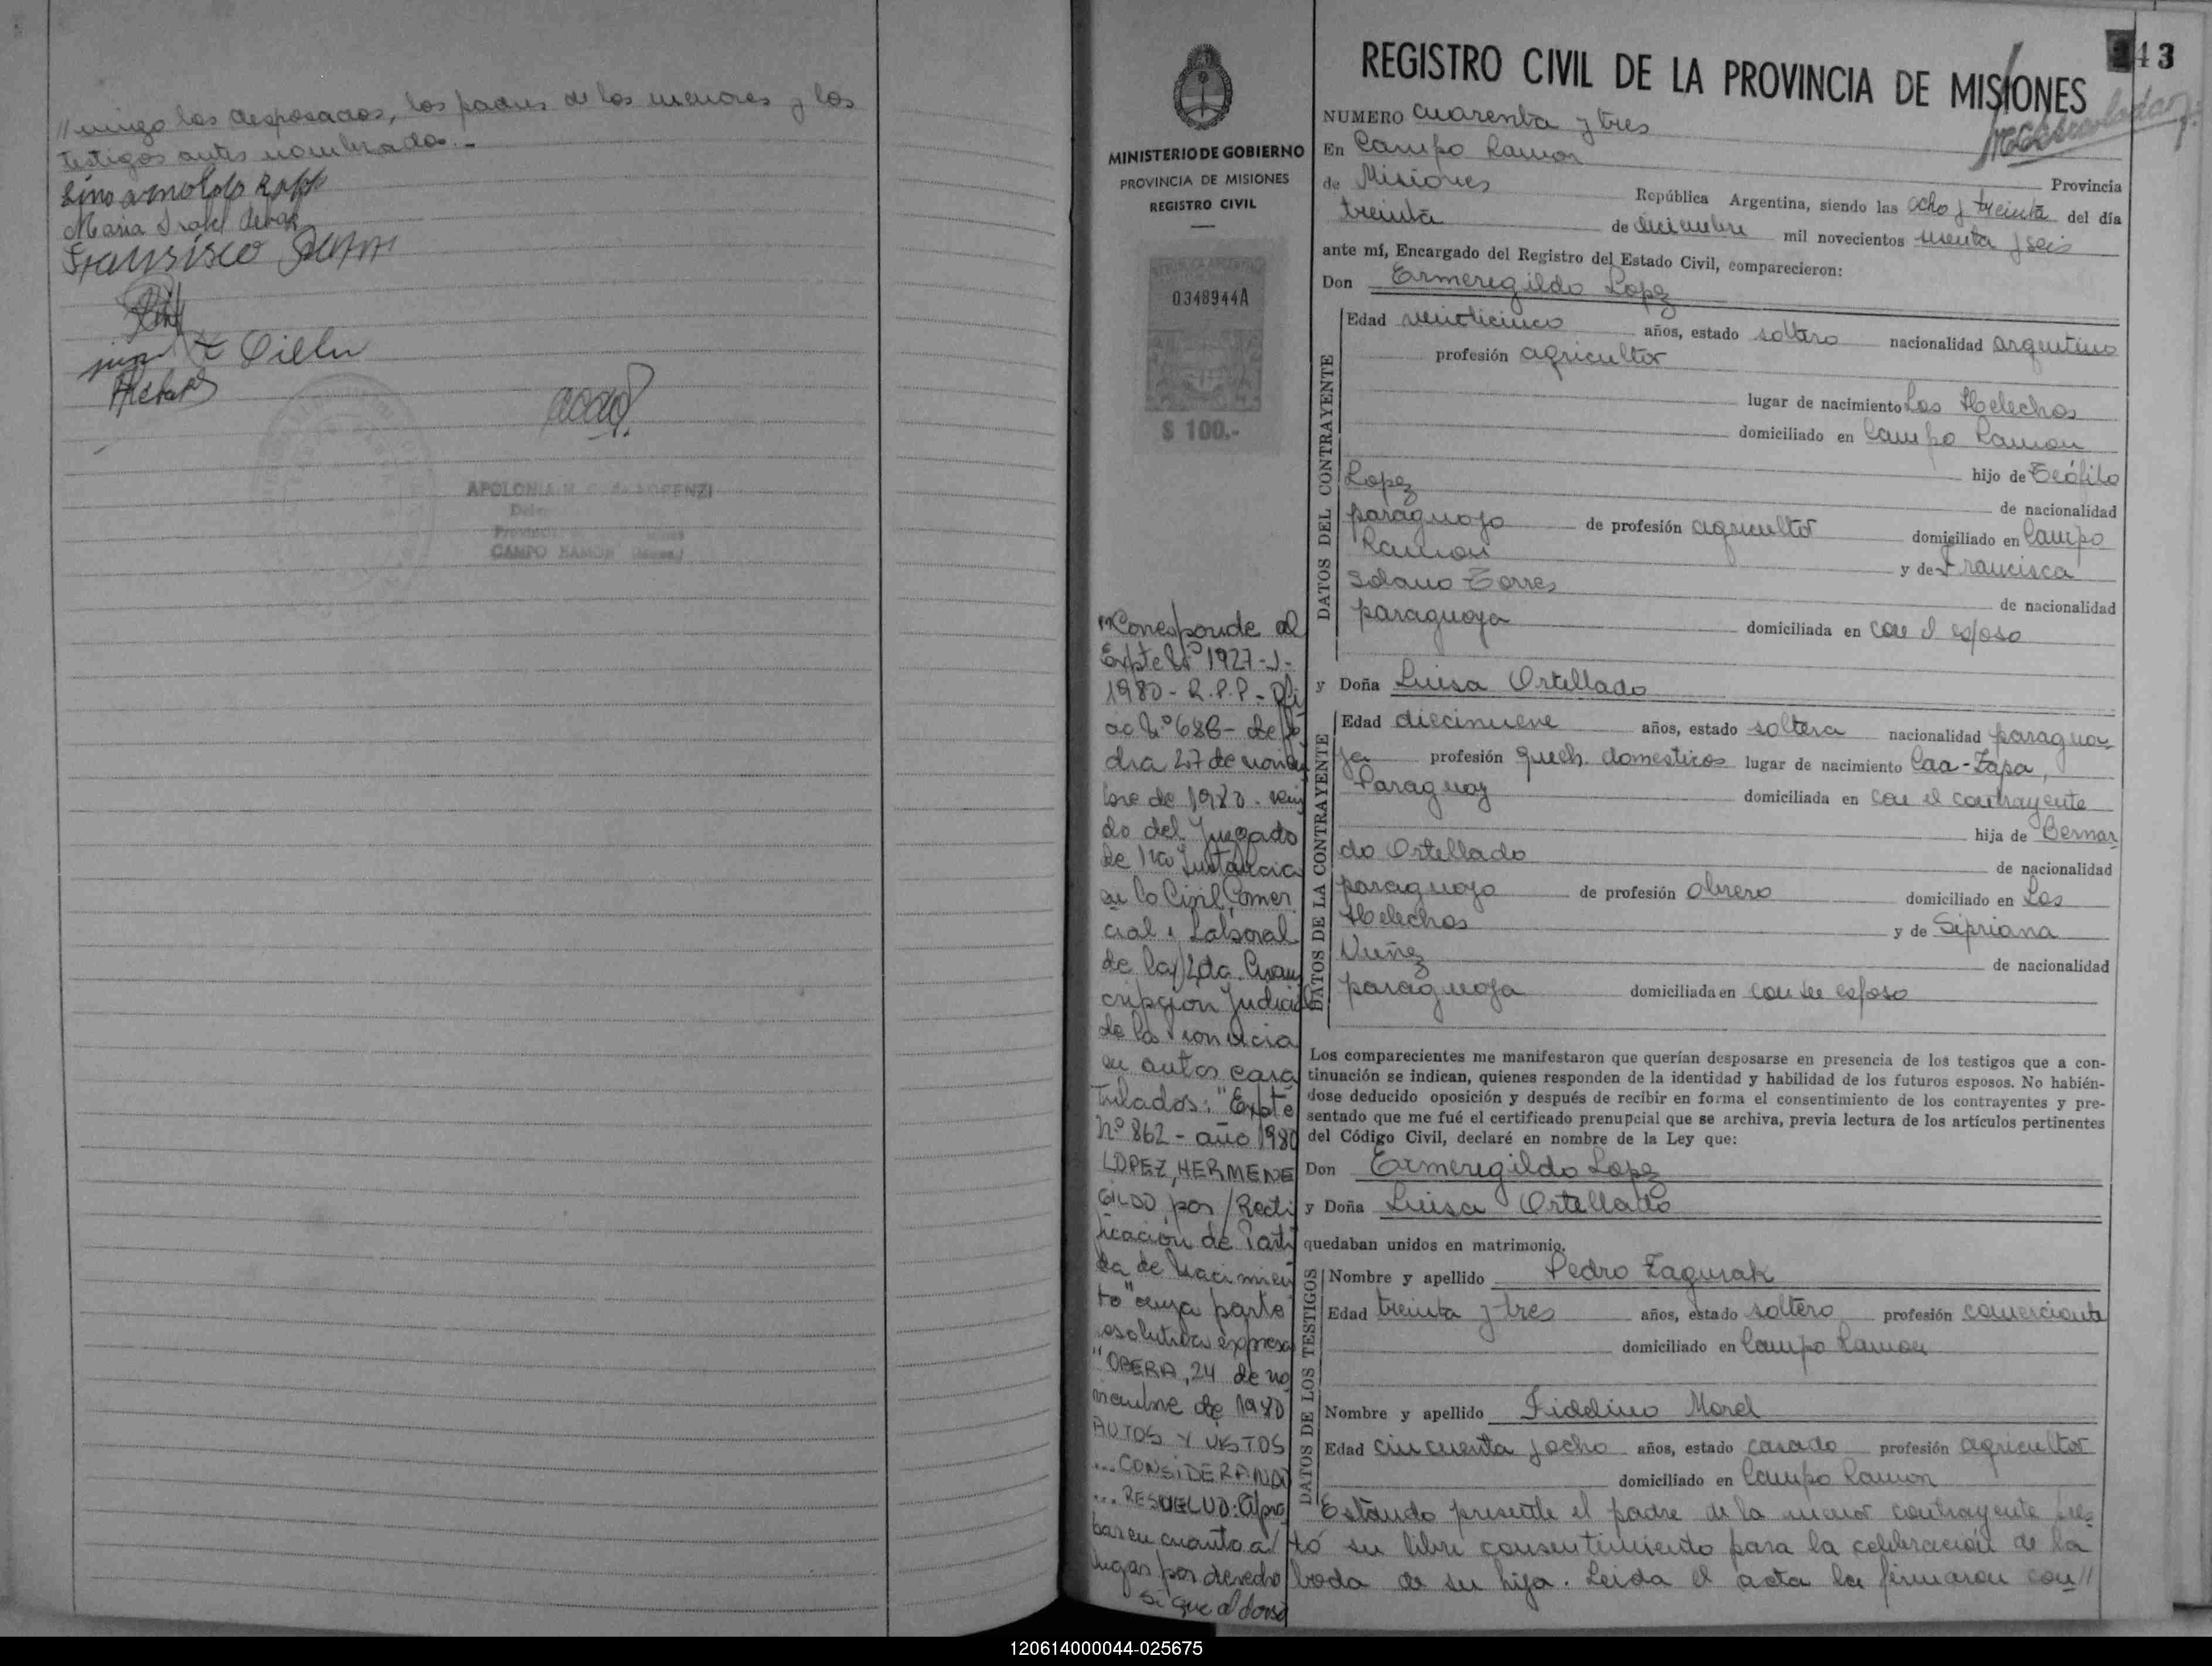 //migo los desposados, los padres de los menores y los
testigos antes nombrados.-
Lino Arnoldo Rapp
Maria Isabel
Fransisco
APOLONIA M. G. de LORENZI
CAMPO RAMON
43
REGISTRO CIVIL DE LA PROVINCIA DE MISIONES
MINISTERIO DE GOBIERNO
PROVINCIA DE MISIONES
REGISTRO CIVIL
0348944A
$ 100.-
NUMERO cuarenta y tres
En Campo Ramon
Provincia
de Misiones República Argentina, siendo las ocho y treinta del día
treinta de diciembre mil novecientos sesenta y seis
ante mí, Encargado del Registro del Estado Civil, comparecieron:
Don Ermeregildo Lopez
DATOS DEL CONTRAYENTE
Edad veinticinco años, estado soltero nacionalidad argentino
profesión agricultor
lugar de nacimiento Los Helechos
domiciliado en Campo Ramon
hijo de Teófilo
Lopez
de nacionalidad
paraguayo de profesión agricultor domiciliado en Campo
Ramon y de Francisca
Solano Torres
de nacionalidad
paraguaya domiciliada en con el esposo
y Doña Luisa Ortellado
DATOS DE LA CONTRAYENTE
Edad diecinueve años, estado soltera nacionalidad paragua-
ya profesión queh. domesticos lugar de nacimiento Caa-Zapa,
Paraguay domiciliada en con el contrayente
hija de Bernar
do Ortellado
de nacionalidad
paraguayo de profesión obrero domiciliado en Los
Helechos y de Sipriana
Nuñez
de nacionalidad
paraguaya domiciliada en con su esposo
Los comparecientes me manifestaron que querían desposarse en presencia de los testigos que a con-
tinuación se indican, quienes responden de la identidad y habilidad de los futuros esposos. No habién-
dose deducido oposición y después de recibir en forma el consentimiento de los contrayentes y pre-
sentado que me fué el certificado prenupcial que se archiva, previa lectura de los artículos pertinentes
del Código Civil, declaré en nombre de la Ley que:
Don Ermeregildo Lopez
y Doña Luisa Ortellado
quedaban unidos en matrimonio.
DATOS DE LOS TESTIGOS
Nombre y apellido Pedro Zagurak
Edad treinta y tres años, estado soltero profesión comerciante
domiciliado en Campo Ramon
Nombre y apellido Fidelino Morel
Edad cincuenta y ocho años, estado casado profesión agricultor
domiciliado en Campo Ramon
Estando presente el padre de la menor contrayente pres-
tó su libre consentimiento para la celebración de la
boda de su hija. Leida el acta la firmaron con//
Corresponde al
Expte Nº 1927-J-
1980- R.P.P- Ofi
cio Nº 686- de fe
cha 27 de noviem
bre de 1980.
do del Juzgado
de 1ra Instancia
en lo Civil, Comer
cial y Laboral
de la 2da. Circuns
cripcion Judicial
de la Provincia
en autos cara
tulados: "Expte
Nº 862 - año 1980
LOPEZ, HERMENE
GILDO por / Recti
ficación de Parti
da de Nacimien
to" cuya parte
resolutiva expresa
"OBERA, 24 de no
viembre de 1980
AUTOS Y VISTOS
...CONSIDERANDO
...RESUELVO: Apro
bar en cuanto a/
lugar por derecho
sigue al dorso
120614000044-025675